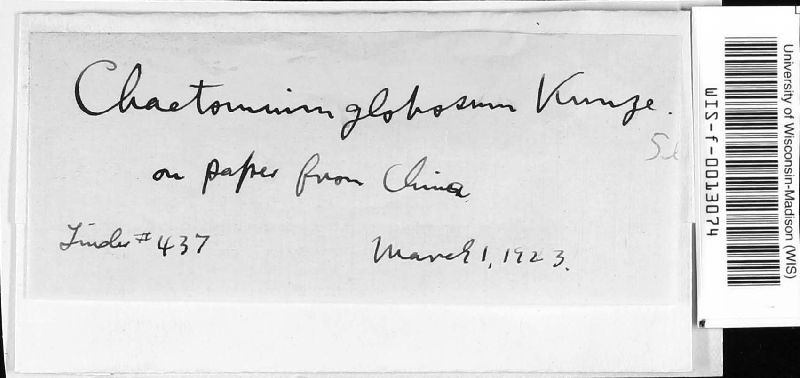 Chaetomium globosum Kunze.
on paper from China
Linder # 437
March 1, 1923.
WIS-f-0013074
University of Wisconsin-Madison (WIS)